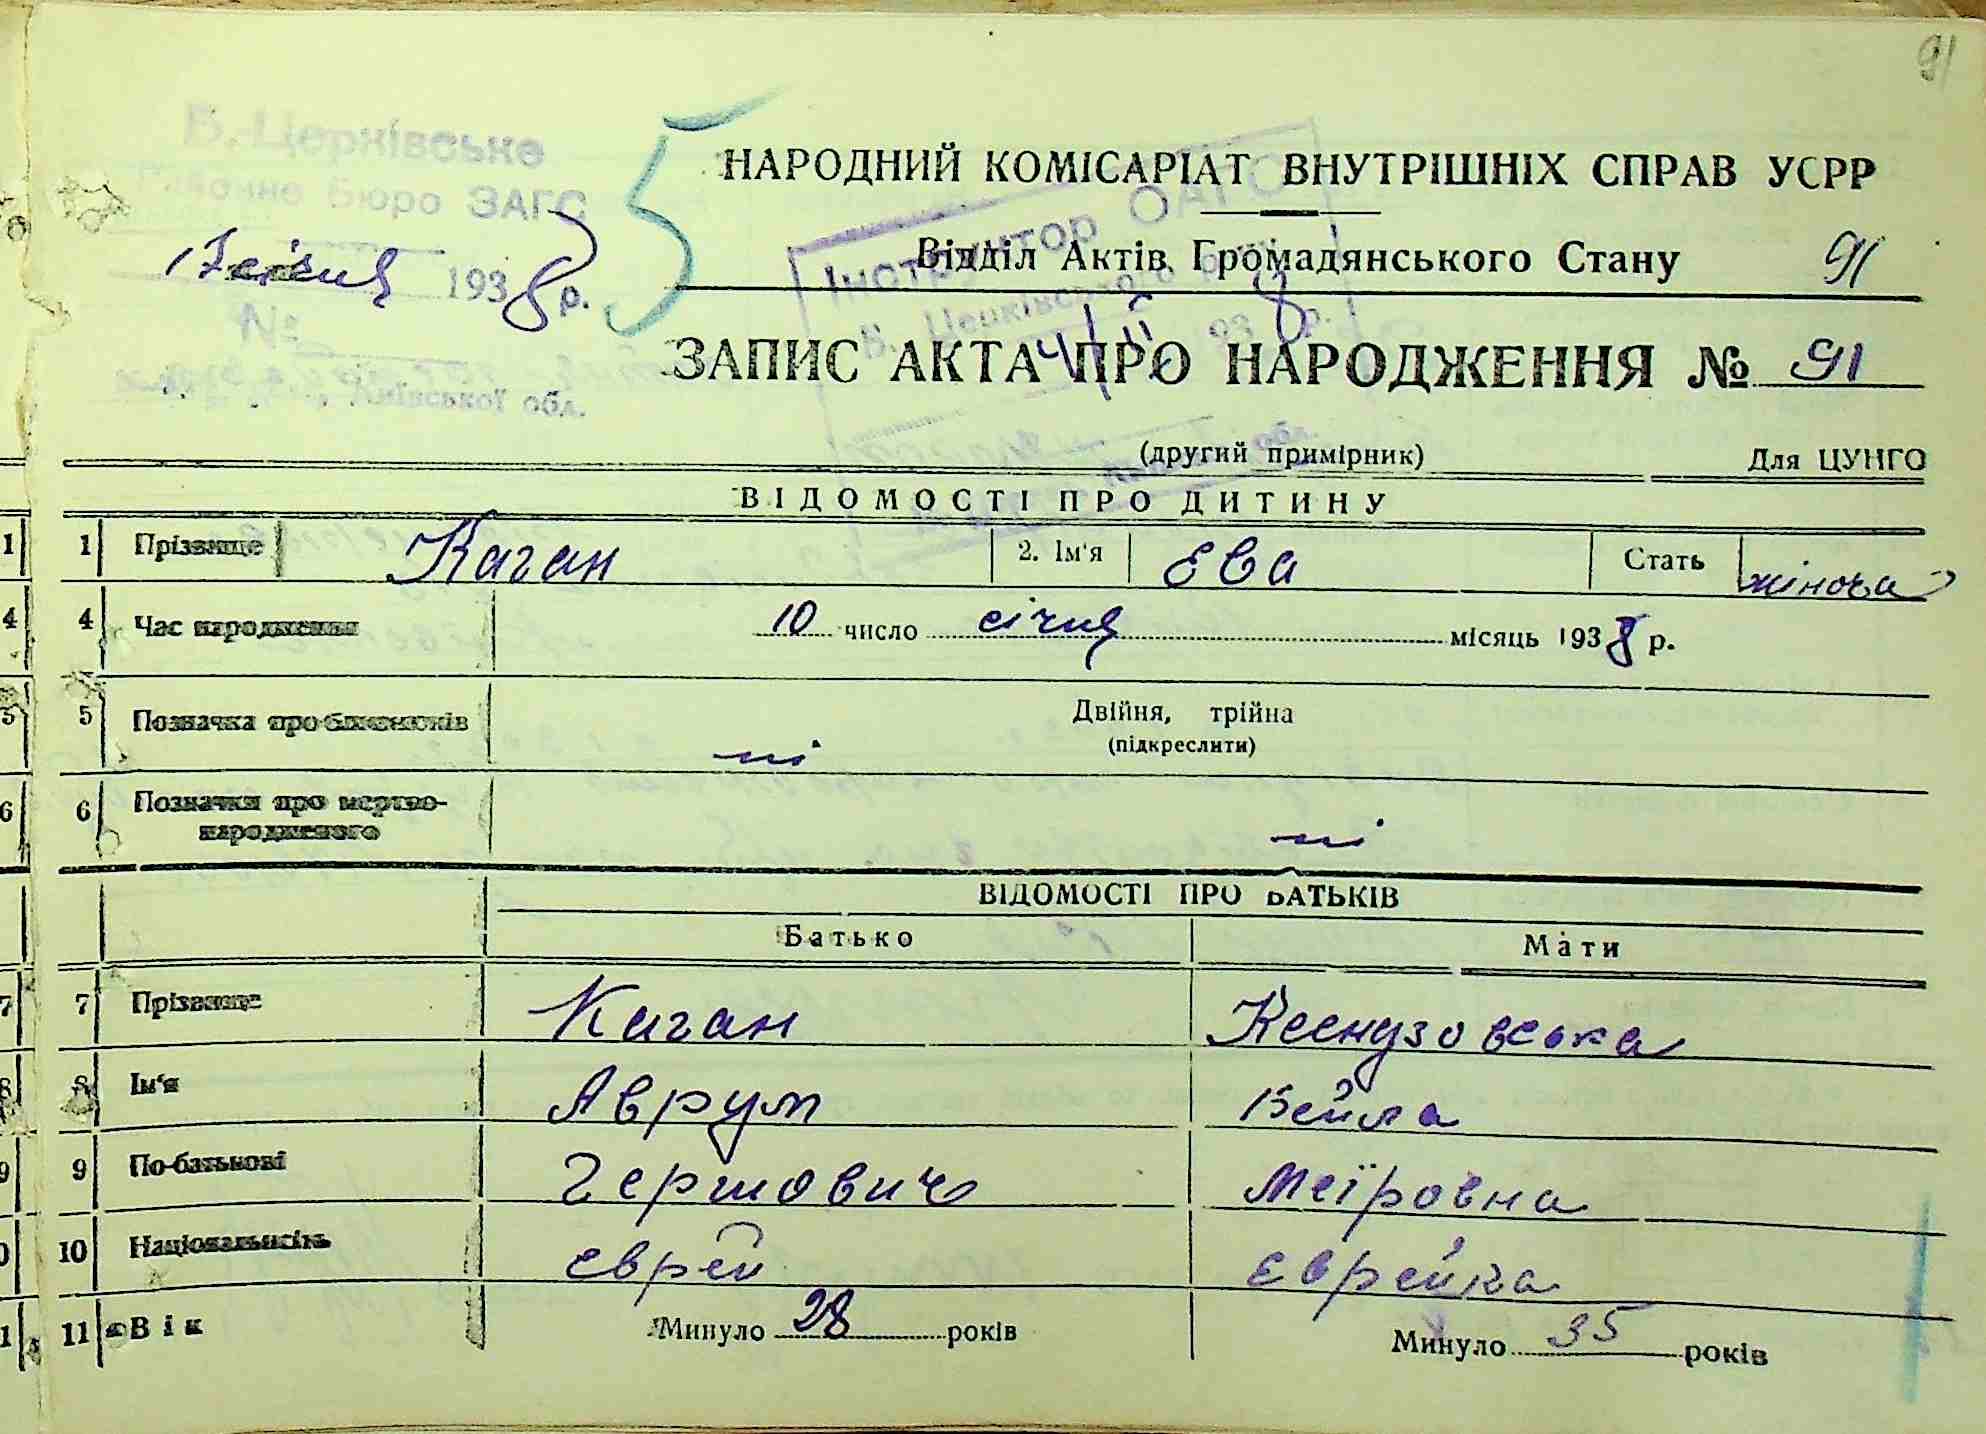 91
Б.-Церківське
Районне Бюро ЗАГС
17 січня 1938 р.
№
Київської обл.
5
НАРОДНИЙ КОМІСАРІАТ ВНУТРІШНІХ СПРАВ УСРР
Інструктор ОАГС
Відділ Актів Громадянського Стану 91
193 8 р.
ЗАПИС АКТА ПРО НАРОДЖЕННЯ № 91
(другий примірник) Для ЦУНГО
ВІДОМОСТІ ПРО ДИТИНУ
1 1 Прізвище Каган 2. Ім'я Ева Стать жіноча
4 4 Час народження 10 число січня місяць 1938 р.
5 5 Позначка про близнюків Двійня, трійна
(підкреслити)
ні
6 6 Позначки про мертво-
народженого ні
ВІДОМОСТІ ПРО БАТЬКІВ
Батько Мати
7 7 Прізвище Каган
8 8 Ім'я Аврум Бейла
9 9 По-батькові Гершович Меїровна
0 10 Національність єврей Єврейка
1 11 Вік Минуло 28 років Минуло 35 років